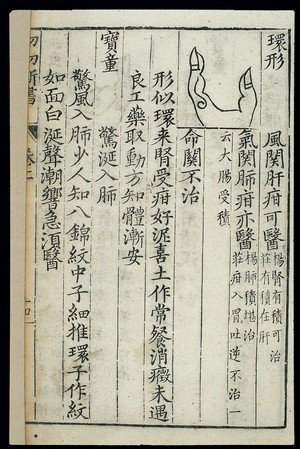 環形
風関肝疳可醫
楊腎有積可治
莊有積在肝
氣関肺疳亦醫
楊肺積堪治
莊疳入胃吐逆不治一
云大腸受積
命関不治
形似環来腎受疳好泥喜土作常餐消癥未遇
良工藥取動方知體漸安
寶童
驚涎入肺
驚風入肺少人知八錦紋中子細推環子作紋
如面白涎聲潮響急湏醫
切新書
卷二